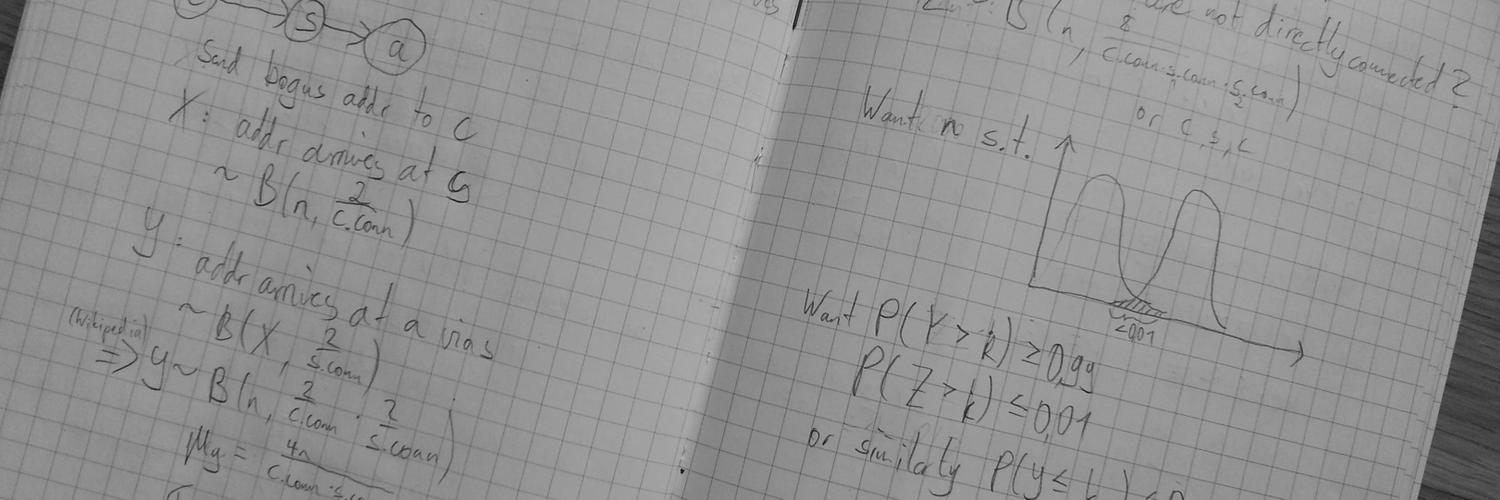 c s a
Send bogus addr to C
X: addr arrives at s
~ B(n, 2/c.conn)
Y: addr arrives at a via s
~ B(X, 2/s.conn)
(Wikipedia)
⇒ Y ~ B(n, 2/c.conn · 2/s.conn)
μy = 4n/c.conn · s.co
are not directly connected?
B(n, 8/c.conn · s₁.conn · s₂.conn)
or c, s, c
Want n s.t.
<0.01
Want P(Y > k) ≥ 0,99
P(Z > k) ≤ 0,01
or similarly P(Y ≤ k) ≤ 0